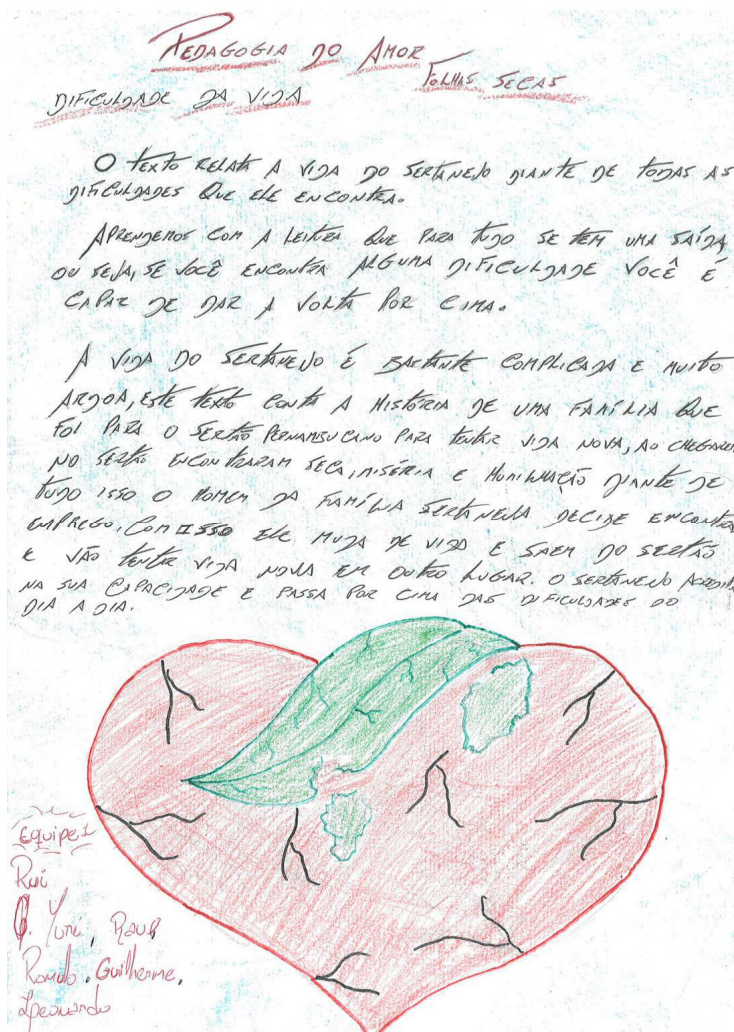 PEDAGOGIA DO AMOR
FOLHAS SECAS
DIFICULDADE DA VIDA
O TEXTO RELATA A VIDA DO SERTANEJO DIANTE DE TODAS AS
DIFICULDADES QUE ELE ENCONTRA.
APRENDEMOS COM A LEITURA QUE PARA TUDO SE TEM UMA SAÍDA,
OU SEJA, SE VOCÊ ENCONTRA ALGUMA DIFICULDADE VOCÊ É
CAPAZ DE DAR A VOLTA POR CIMA.
A VIDA DO SERTANEJO É BASTANTE COMPLICADA E MUITO
ARDOA, ESTE TEXTO CONTA A HISTÓRIA DE UMA FAMÍLIA QUE
FOI PARA O SERTÃO PERNAMBUCANO PARA TENTAR VIDA NOVA, AO CHEGAREM
NO SERTÃO ENCONTRARAM SECA, MISÉRIA E HUMILHAÇÃO DIANTE DE
TUDO ISSO O HOMEM DA FAMÍLIA SERTANEJA DECIDE ENCONTRAR
EMPREGO, COM ISSO ELE MUDA DE VIDA E SAEM DO SERTÃO
E VÃO TENTAR VIDA NOVA EM OUTRO LUGAR. O SERTANEJO ACREDITA
NA SUA CAPACIDADE E PASSA POR CIMA DAS DIFICULDADES DO
DIA A DIA.
Equipe 1
Rui
Yuri, Raul
Romulo, Guilherme,
Leonardo